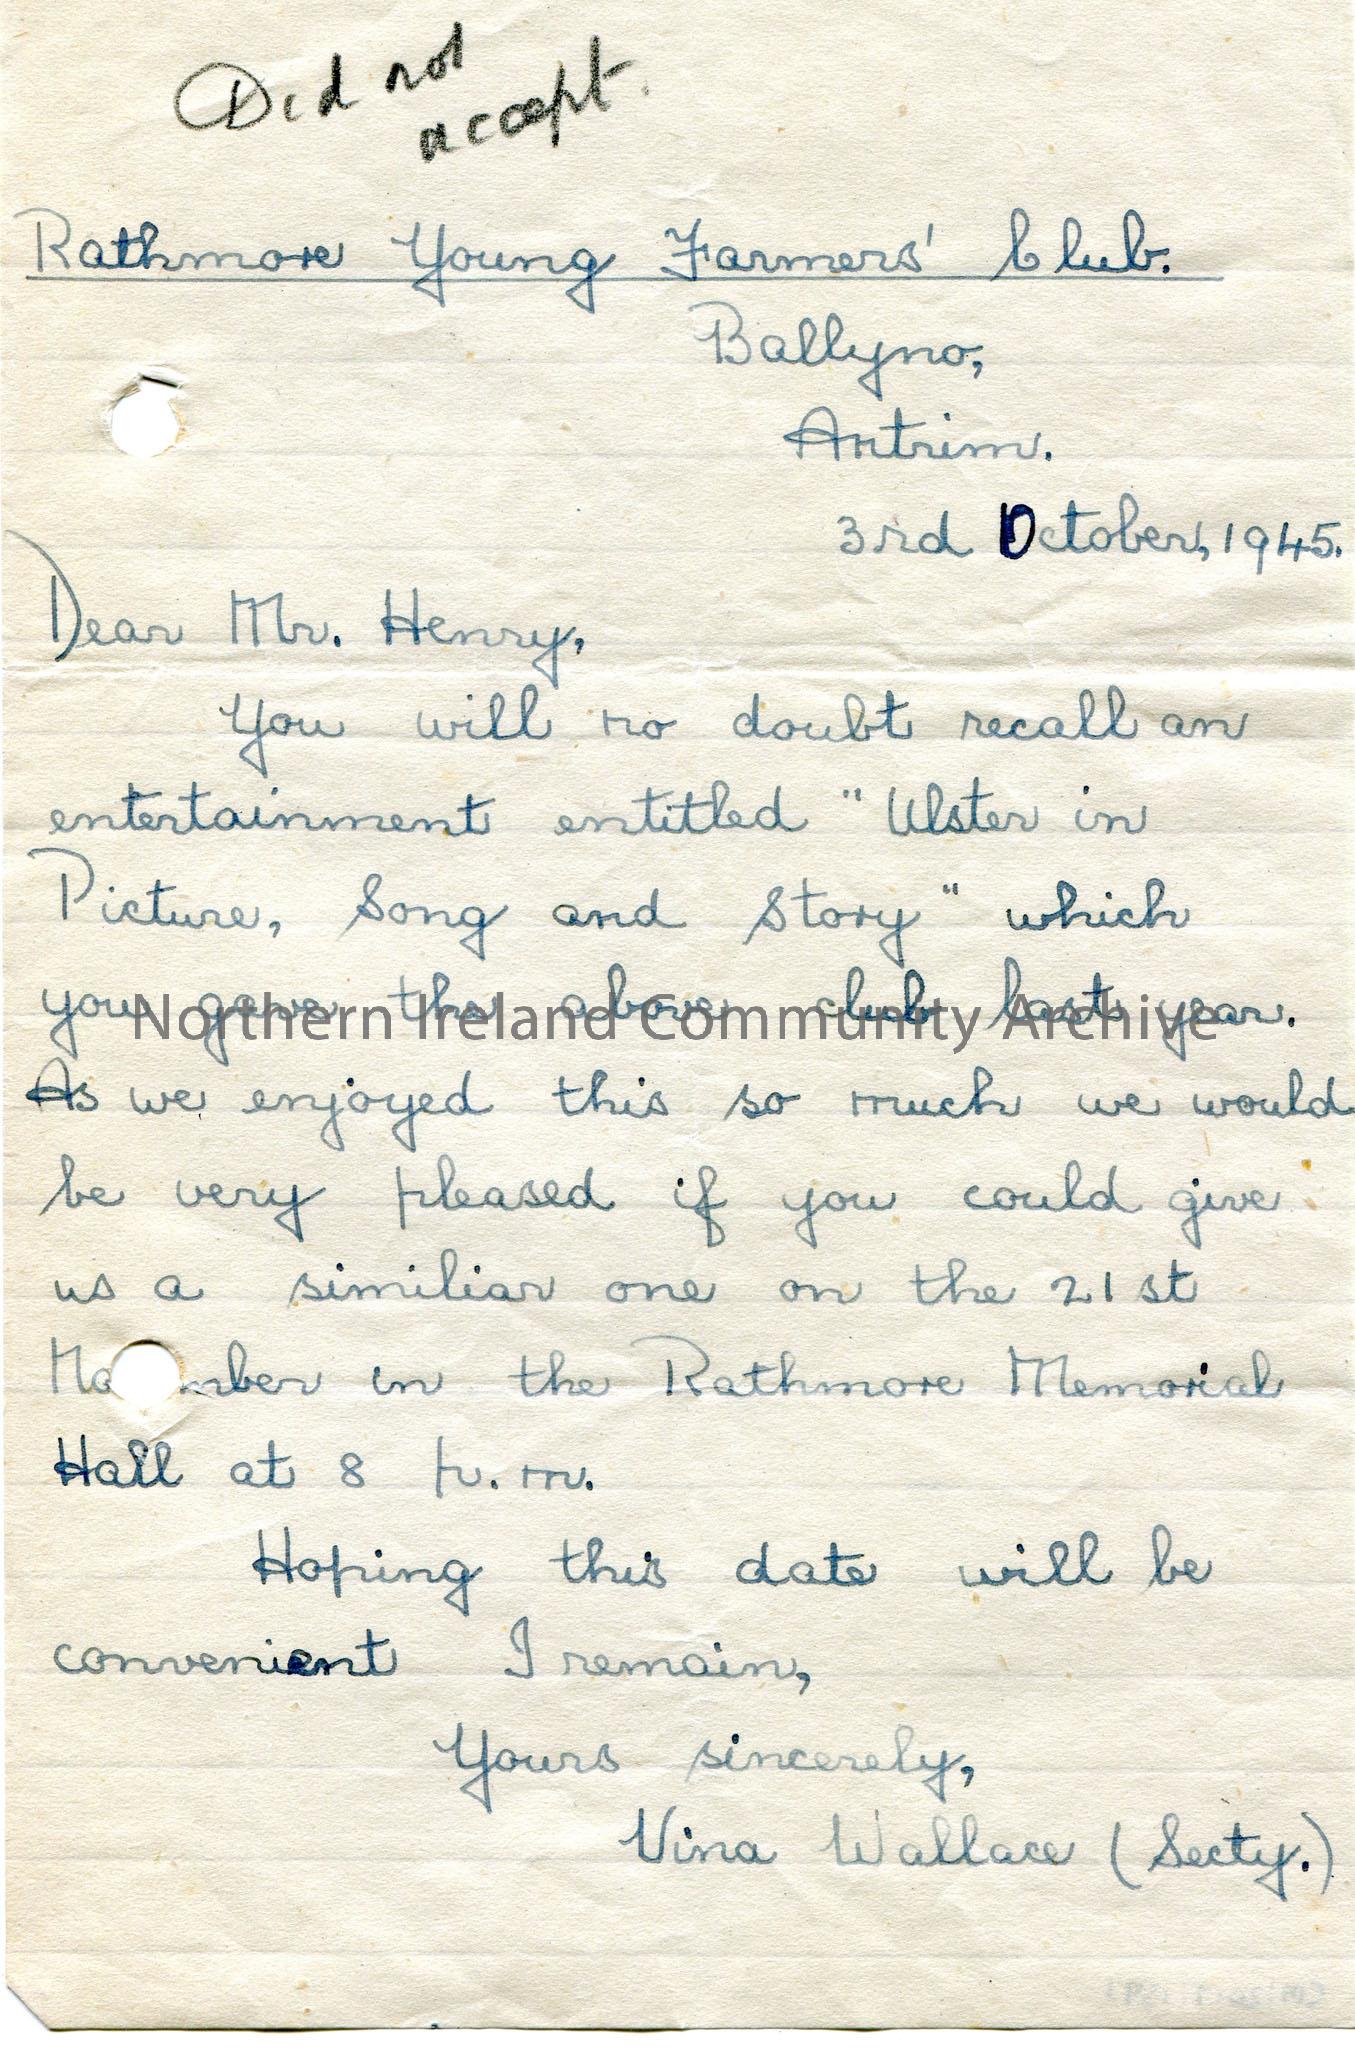 Did not
accept.
Rathmore Young Farmers' Club.
Ballyno,
Antrim.
3rd October, 1945.
Dear Mr. Henry,
You will no doubt recall an
entertainment entitled "Ulster in
Picture, Song and Story" which
you gave the above club last year.
Northern Ireland Community Archive
As we enjoyed this so much we would
be very pleased if you could give
us a similiar one on the 21st
in the Rathmore Memorial
Hall at 8 p.m.
Hoping this date will be
convenient I remain,
Yours sincerely,
Vina Wallace (Secty.)